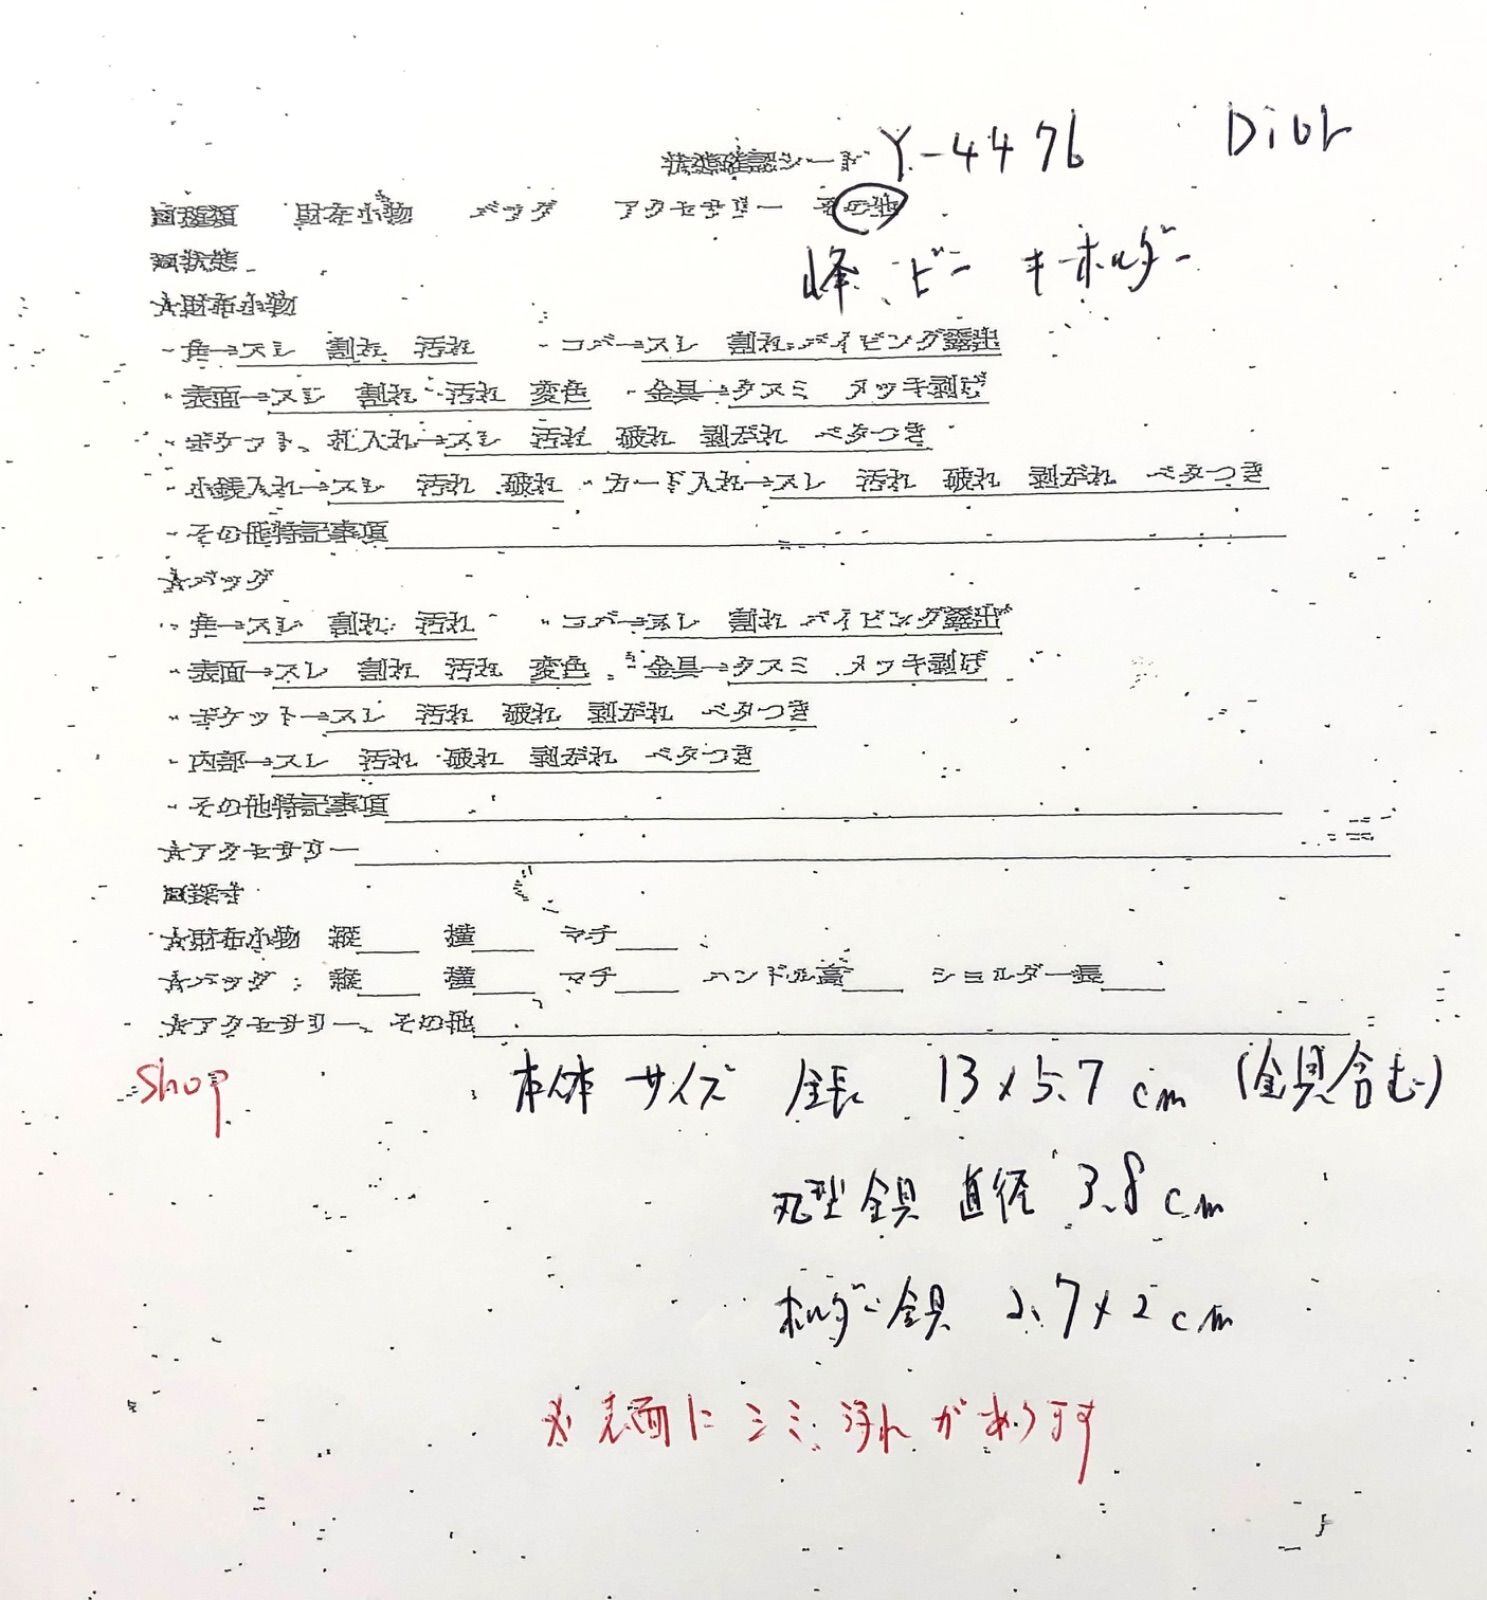 状態確認シート Y-4476 Dior
□種類 財布小物 バッグ アクセサリー その他
峰、ビー キーホルダー
□状態
☆財布小物
・角→スレ 割れ 汚れ ・コバ→スレ 割れ パイピング露出
・表面→スレ 割れ 汚れ 変色 ・金具→クスミ メッキ剥げ
・ポケット、札入れ→スレ 汚れ 破れ 剥がれ ベタつき
・小銭入れ→スレ 汚れ 破れ ・カード入れ→スレ 汚れ 破れ 剥がれ ベタつき
・その他特記事項
☆バッグ
・角→スレ 割れ 汚れ ・コバ→スレ 割れ パイピング露出
・表面→スレ 割れ 汚れ 変色 ・金具→クスミ メッキ剥げ
・ポケット→スレ 汚れ 破れ 剥がれ ベタつき
・内部→スレ 汚れ 破れ 剥がれ ベタつき
・その他特記事項
☆アクセサリー
□採寸
☆財布小物 縦 横 マチ
☆バッグ 縦 横 マチ ハンドル高 ショルダー長
☆アクセサリー、その他
shop 本体サイズ 全長 13×5.7cm (金具含む)
丸型金具 直径 3.8cm
ホルダー金具 2.7×2cm
※表面にシミ汚れがあります